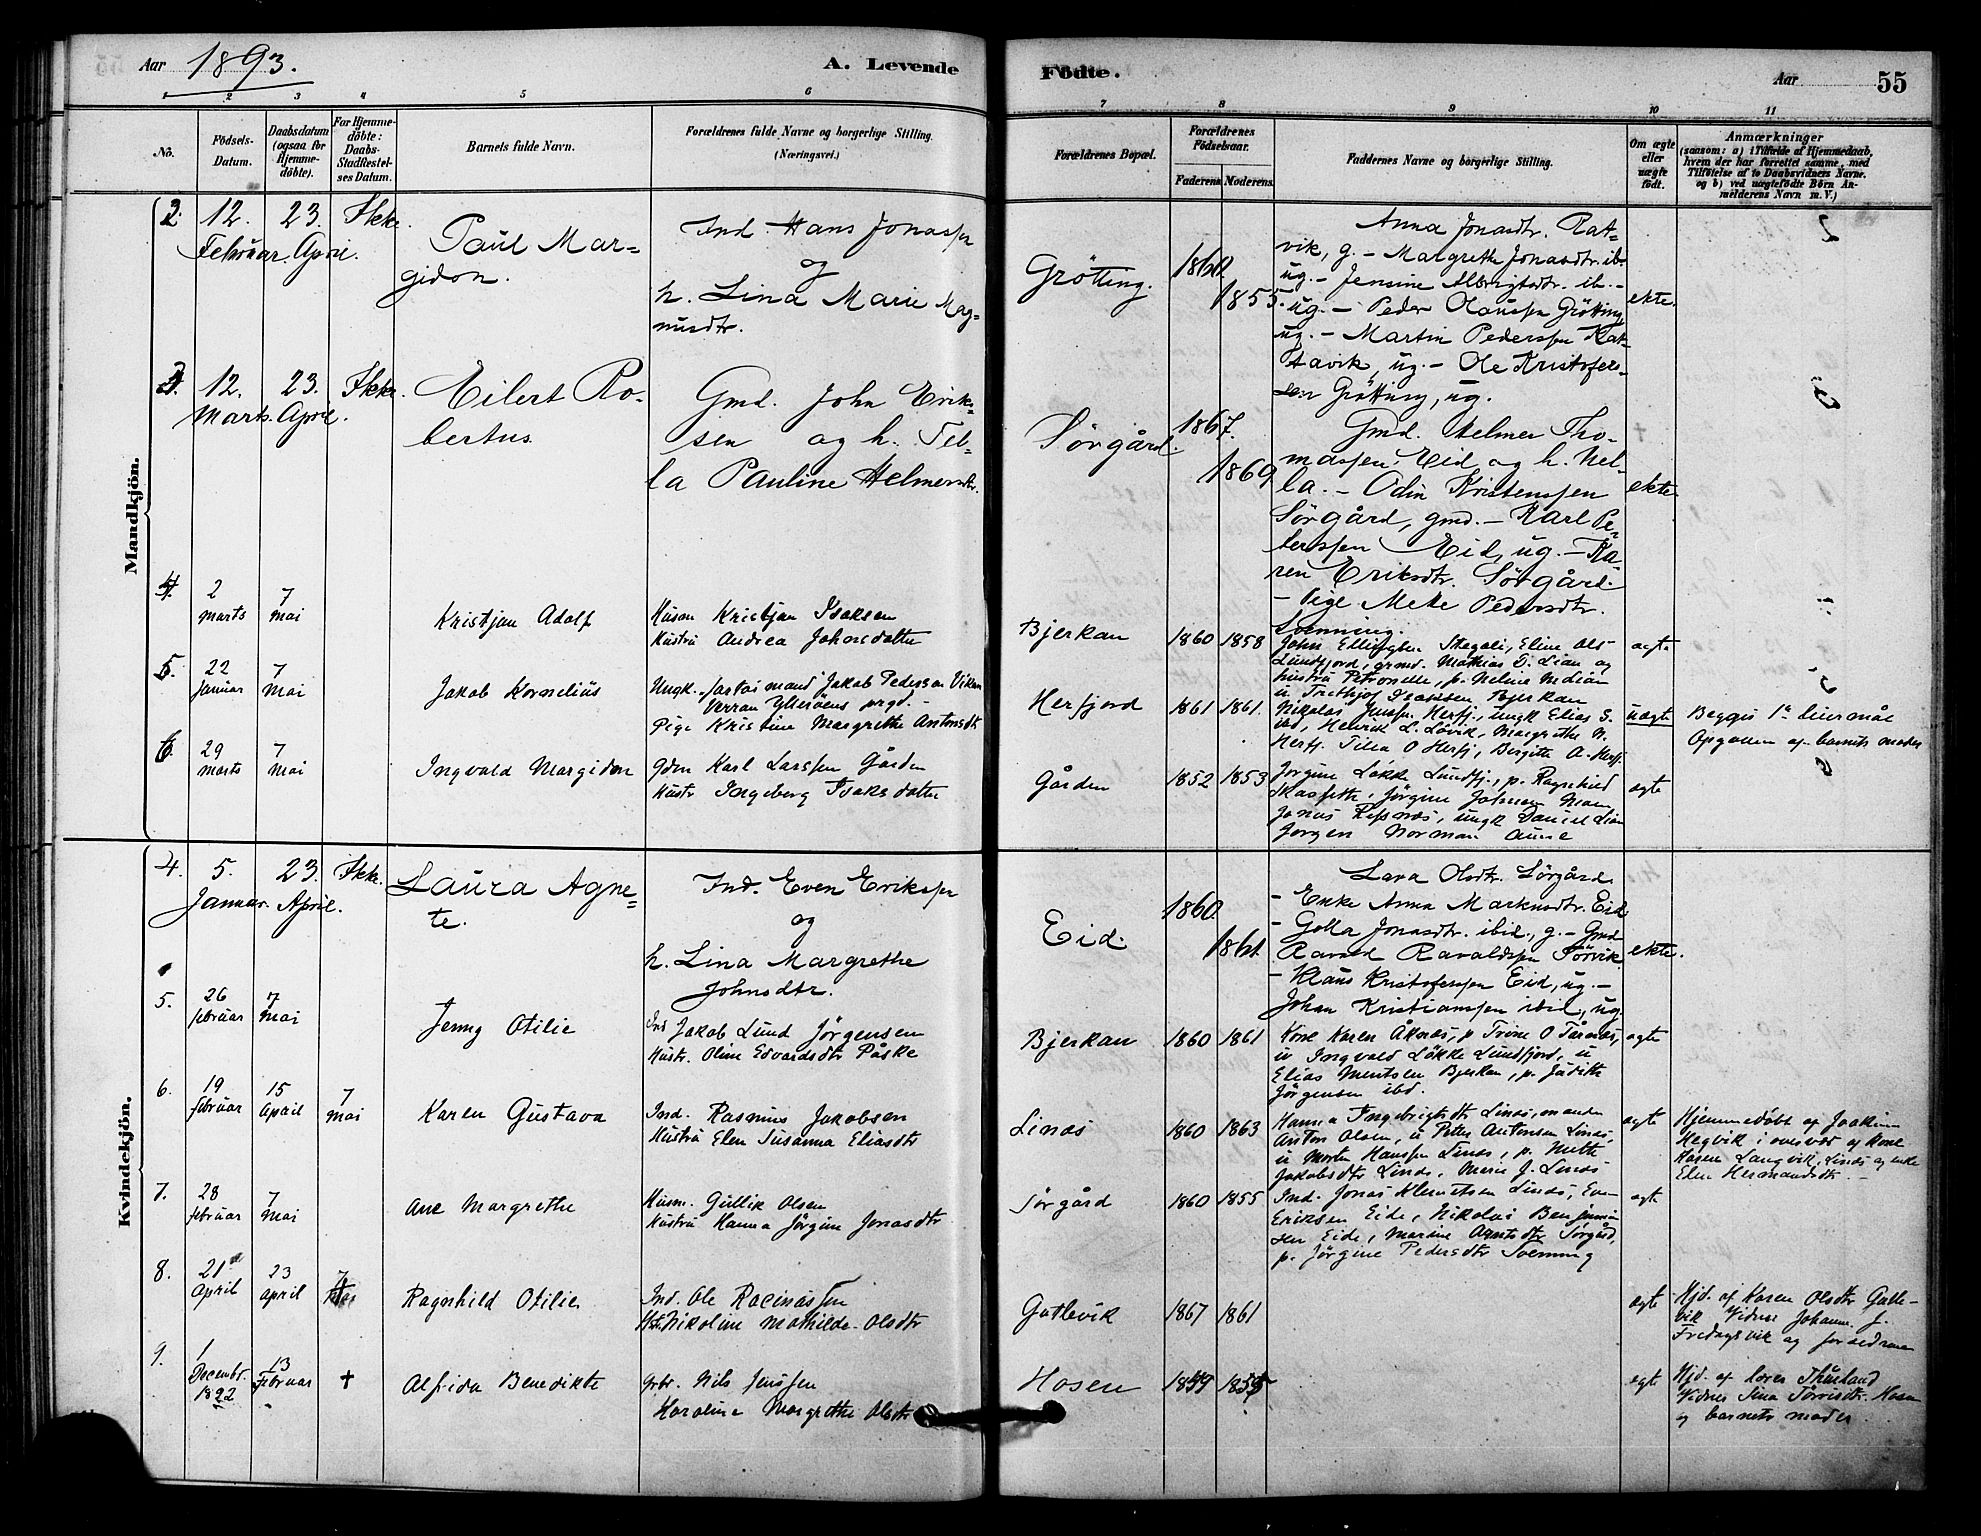 Aar 1893.
A. Levende
Födte.
Aar 55
1 2 3 4 5 6
7 8 9 10 11
No.
Födsels-
Datum.
Daabsdatum
(ogsaa for
Hjemme-
döbte).
For Hjemme-
döbte:
Daabs-
Stadfæstel-
ses Datum.
Barnets fulde Navn.
Forældrenes fulde Navne og borgerlige Stilling.
(Næringsvei.)
Forældrenes Bopæl.
Forældrenes
Födselsaar.
Faderens Moderens
Faddernes Navne og borgerlige Stilling.
Om ægte
eller
uægte
födt.
Anmærkninger
(saasom: a) i Tilfælde af Hjemmedaab,
hvem der har forrettet samme, med
Tilföielse af to Daabsvidners Navne.
og b) ved uægtefödte Börn An-
melderens Navn m. V.)
Mandkjön.
2. 12. Februar. 23. April. Ikke.
Paul Mar-
gidon.
Ind. Hans Jonassen
og
h. Lina Marie Mag-
nusdtr.
Grötting.
1860.
1855.
Anna Jonasdtr. Rat-
vik, g. - Margrethe Jonasdtr. ib.
ug. - Jensine Albrigtsdtr. ib. -
ug. - Peder Olaussen Grötting
ug. - Martin Pederssen Rat-
vik, ug. - Ole Kristofers-
sen Grötting, ug.
ekte.
2
3. 12. Marts. 23. April. Ikke.
Eilert Ro-
bertus.
Gmd. John Erik-
sen og h. Tel-
la Pauline Helmersdtr.
Sörgård.
1867.
1869
Gmd. Helmer Tho-
massen Eid og h. Nel-
la. - Odin Kristenssen
Sörgård, gmd. - Karl Pe-
derssen Eid, ug. - Ka-
ren Eriksdtr. Sörgård.
- Pige Mete Pedersdtr.
Svenning.
ekte.
3
4. 2 marts 7 mai
Kristjan Adolf
Husm Kristjan Isaksen
Hustru Andrea Johnsdatter
Bjerkan
1860 1858
John Ellingsen Stegali, Eline Ols
Lundfjord, grmd. Mathias D. Lian og
hustru Petronelle, p. Neline Median
u Frethjof Isaksen Bjerkan
ægte
5. 22 Januar 7 Mai
Jakob Kornelius
Ungk. Jakob Pedersen Vikan
Verran Ytterøens prgd. -
Pige Kristine Margrethe Antonsdtr
Herfjord
1861 1861.
Nikolai Jenssen Herfj., ungk Elias S.
ibd, Henrik L. Løvik, Margrethe N.
Herfj. Tilla O Herfj, Birgitte A. Herfj.
uægte
Begges 1ste leiermål
Opgaven af barnets moder
5
6. 29 marts 7 Mai
Ingvald Margidon
Gdm Karl Larssen Gården
Hustr Ingeborg Isaksdatter
Gården
1852 1853
Jørgine Løkke Lundfj., p. Ragnhild
Skasseth, Jørgine Johnsen
Jonas Refsnæs, ungk Daniel Lian
Jørgen Norman Aune
ægte
6
Kvindekjön.
4. 5. Januar. 23. April. Ikke.
Laura Agne-
te.
Ind. Even Erikssen
og
h. Lina Margrethe
Johnsdtr.
Eid.
1860.
1861.
Lava Olsdtr. Sörgård
- Enke Anna Markusdtr. Eid
- Golla Jonasdtr. ibid., g. - Gmd
Ravald Ravaldsen Sörvik
- Klaus Kristoferssen Eid, ug. -
Johan Kristianssen ibid, ug.
ekte.
5. 26 februar 7 Mai
Jenny Otilie
Ind Jakob Lund Jörgensen
Hustr. Oline Edvardsdtr Påske
Bjerkan
1860 1861
Kone Karen Åknæs, p Trine O Tårnæs,
u Ingvald Løkke Lundfjord, u
Elias Mentsen Bjerkan, p. Judith
Jörgensen ibd.
ægte
6. 19 februar 15 april 7 mai
Karen Gustava
Ind. Rasmus Jakobsen
Hustru Elen Susanna Eliasdtr
Linæs
1860 1863
Hanna Ingebrigtsdtr Linæs,
Anton Olsen, u Petter Antonsen Linæs,
u Morten Hanssen Linæs, p. Mette
Jakobsdtr Linæs, Merie J. Linæs
ægte
Hjemmedøbt af Joakim
Hegvik i overvær af kone
Karen Langvik, Linæs og enke
Elen Hermandsdtr. -
7. 28 februar 7 Mai
Ane Margrethe
Husm. Gullik Olsen
Hustru Hanna Jørgine Jonasdtr
Sörgård
1860 1855
Ind. Jonas Klemetsen Linæs, Even
Eriksen Eide, Nikolai Benjamin-
sen Eide, Marine Agntsdtr Sørgård,
p. Jörgine Pedersdtr Svenning
ægte
8. 21 April 23 april 7 Mai
Ragnhild Otilie
Ind. Ole Racinussen
Hst. Nikoline Mathilde Olsdtr
Gutlevik
1867 1861
ægte
Hjd. af Karen Olsdtr Gutle-
vik Vidner Johanna J.
Fredagsvik og forældrene
9. 1 Decembr. 1892 13 Februar †
Alfrida Benedikte
grbr. Nils Jenssen
Karoline Margrethe Olsdtr
Hosen
1859 1855
egte
Hjd. af lærer Thusland
Vidner Sina Torrisdtr. Hosen
og barnets moder.